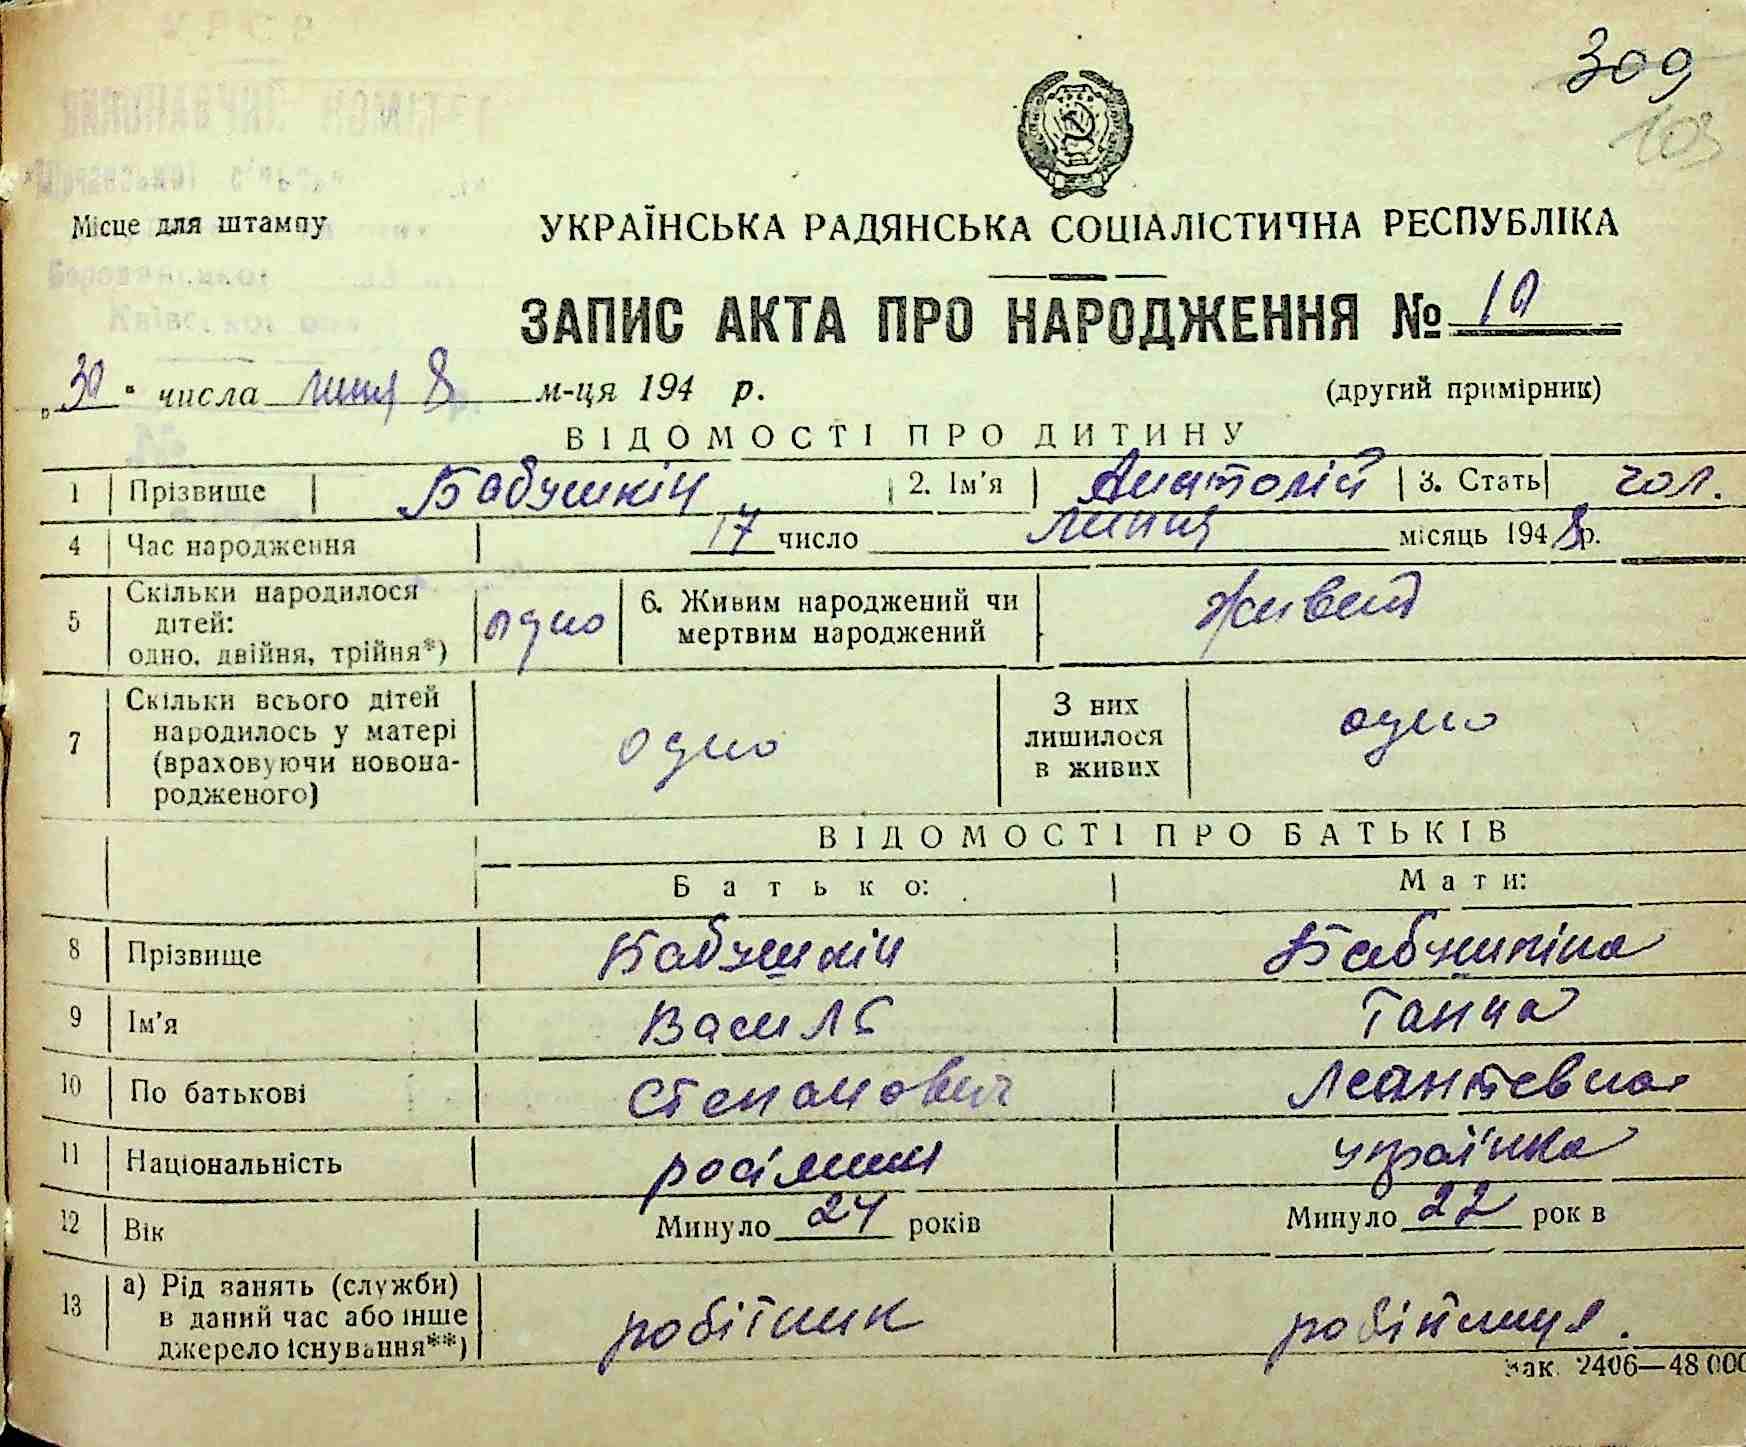 309
103
Місце для штампу
УКРАЇНСЬКА РАДЯНСЬКА СОЦІАЛІСТИЧНА РЕСПУБЛІКА
ЗАПИС АКТА ПРО НАРОДЖЕННЯ № 10
„30" числа липня 8 м-ця 194 р. (другий примірник)
ВІДОМОСТІ ПРО ДИТИНУ
1 Прізвище Бабушкін 2. Ім'я Анатолій 3. Стать чол.
4 Час народження 17 число липня місяць 1948 р.
5 Скільки народилося дітей: одно, двійня, трійня*) одно 6. Живим народжений чи мертвим народжений живий
7 Скільки всього дітей народилось у матері (враховуючи новонародженого) одно З них лишилося в живих одно
ВІДОМОСТІ ПРО БАТЬКІВ
Батько: Мати:
8 Прізвище Бабушкін Бабушкіна
9 Ім'я Василь Ганна
10 По батькові Степанович Леонтевна
11 Національність росіянин українка
12 Вік Минуло 24 років Минуло 22 рок в
13 а) Рід занять (служби) в даний час або інше джерело існування**) робітник робітниця.
Зак. 2406—48 000